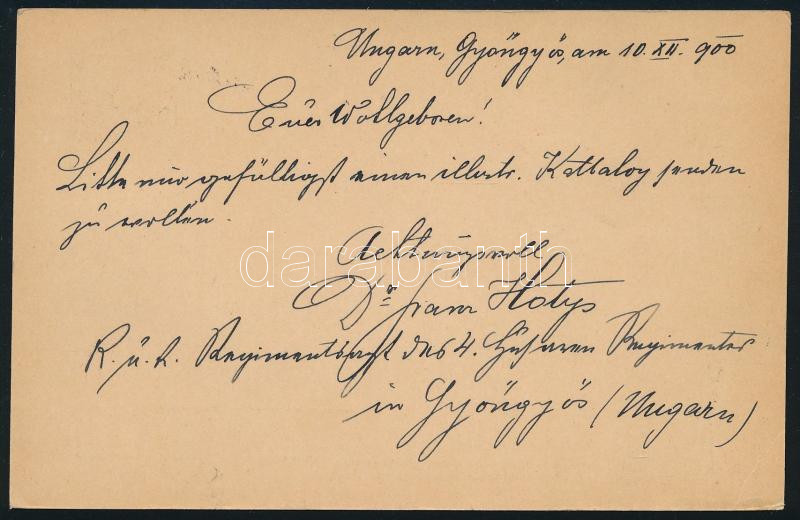 Ungarn, Gyöngyös, am 10. XII. 900
Euer Wollgeboren!
Bitte mir gefülligst einen illustr. Kattalog senden
zu wollen.
Achtungsvoll
darabanth
Dr Franz
K. u. k. Regimentsarzt des 4. Husaren Regimentes
in Gyöngyös (Ungarn)